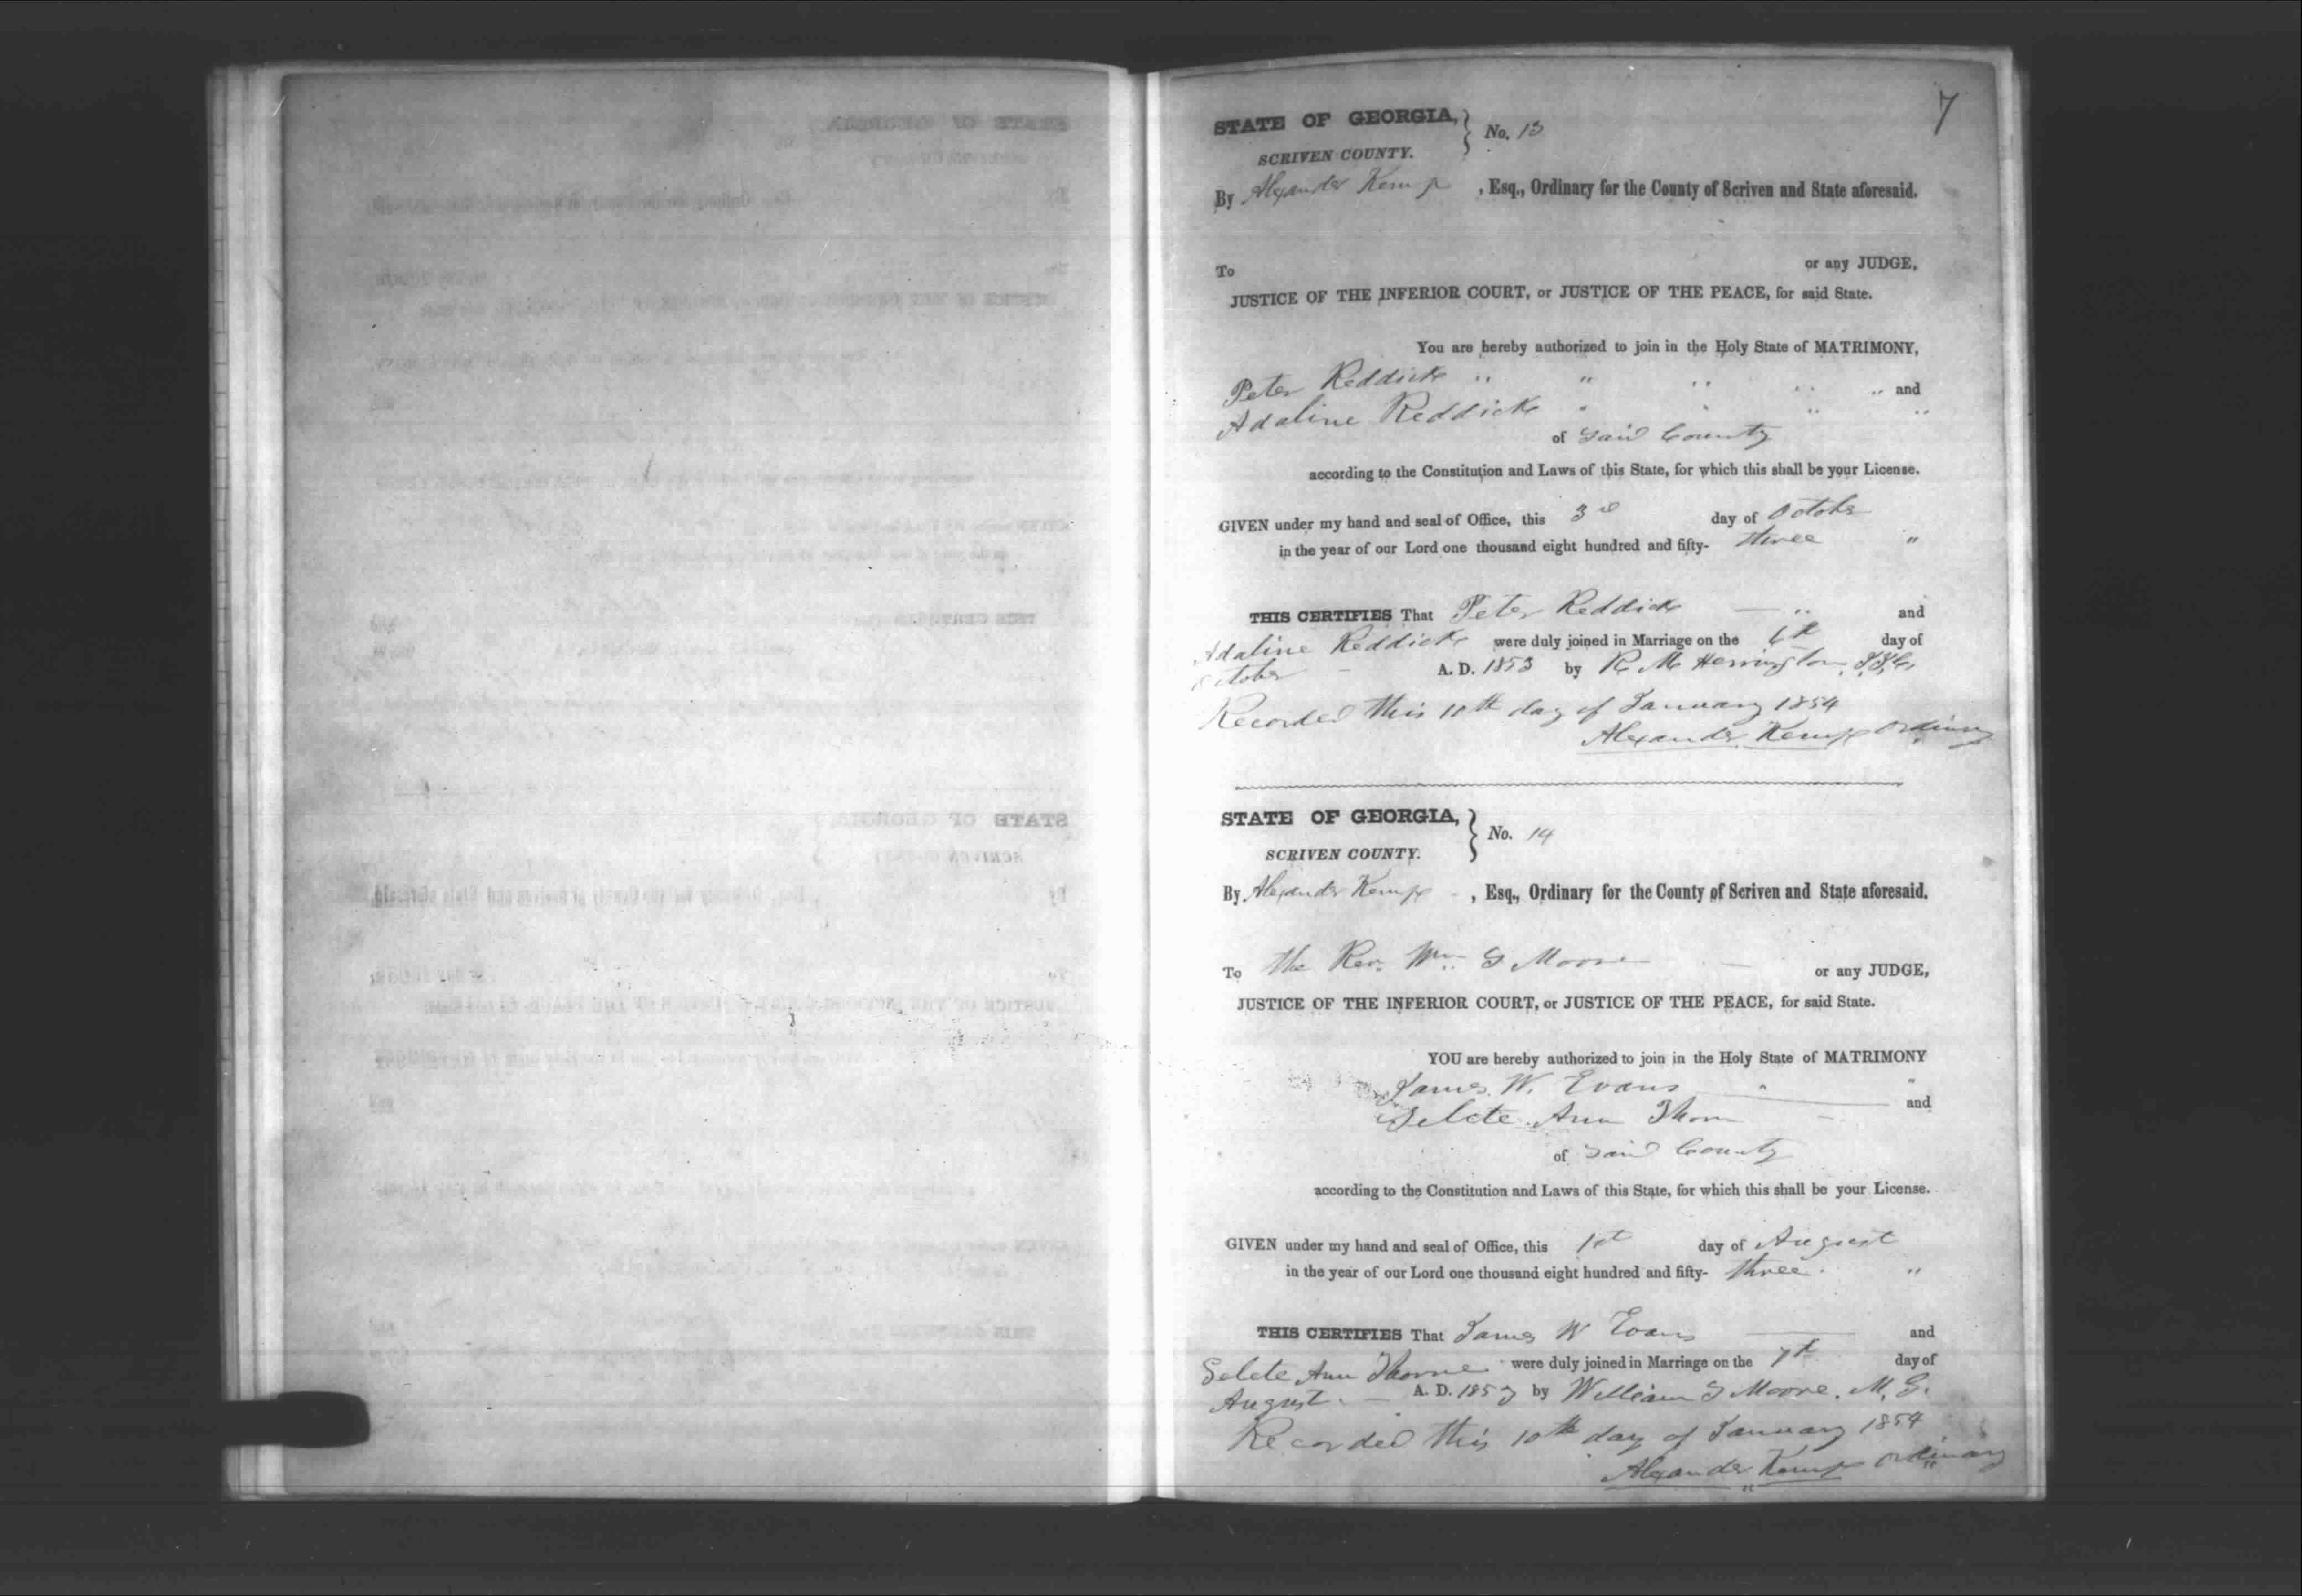 7
STATE OF GEORGIA, } No. 13
SCRIVEN COUNTY.
By Alexander Kemp , Esq., Ordinary for the County of Scriven and State aforesaid.
To or any JUDGE,
JUSTICE OF THE INFERIOR COURT, or JUSTICE OF THE PEACE, for said State.
You are hereby authorized to join in the Holy State of MATRIMONY,
Peter Reddick " " " " " and
Adaline Reddick " " " "
of said County
according to the Constitution and Laws of this State, for which this shall be your License.
GIVEN under my hand and seal of Office, this 3rd day of October
in the year of our Lord one thousand eight hundred and fifty- three "
THIS CERTIFIES That Peter Reddick — " and
Adaline Reddick were duly joined in Marriage on the 6th day of
October - A. D. 1853 by R. M. Herrington, J.I.C.
Recorded this 10th day of January 1854
Alexander Kemp Ordinary
STATE OF GEORGIA, } No. 14
SCRIVEN COUNTY.
By Alexander Kemp - , Esq., Ordinary for the County of Scriven and State aforesaid.
To the Rev. Wm G Moore — or any JUDGE,
JUSTICE OF THE INFERIOR COURT, or JUSTICE OF THE PEACE, for said State.
YOU are hereby authorized to join in the Holy State of MATRIMONY
James W. Evans " " and
Selete Ann Thorn -
of said County
according to the Constitution and Laws of this State, for which this shall be your License.
GIVEN under my hand and seal of Office, this 1st day of August
in the year of our Lord one thousand eight hundred and fifty- three. "
THIS CERTIFIES That James W Evans — and
Selete Ann Thorne were duly joined in Marriage on the 7th day of
August. — A. D. 1853 by William G Moore. M. G.
Recorded this 10th day of January 1854
Alexander Kemp Ordinary